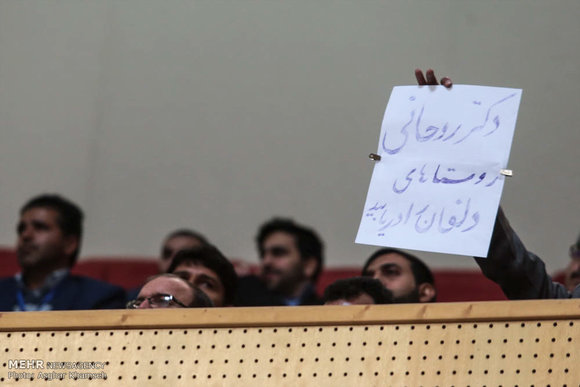 دکتر روحانی
روستاهای
دلفان را دریابید
MEHR NEWSAGENCY
Photo: Asghar Khamseh